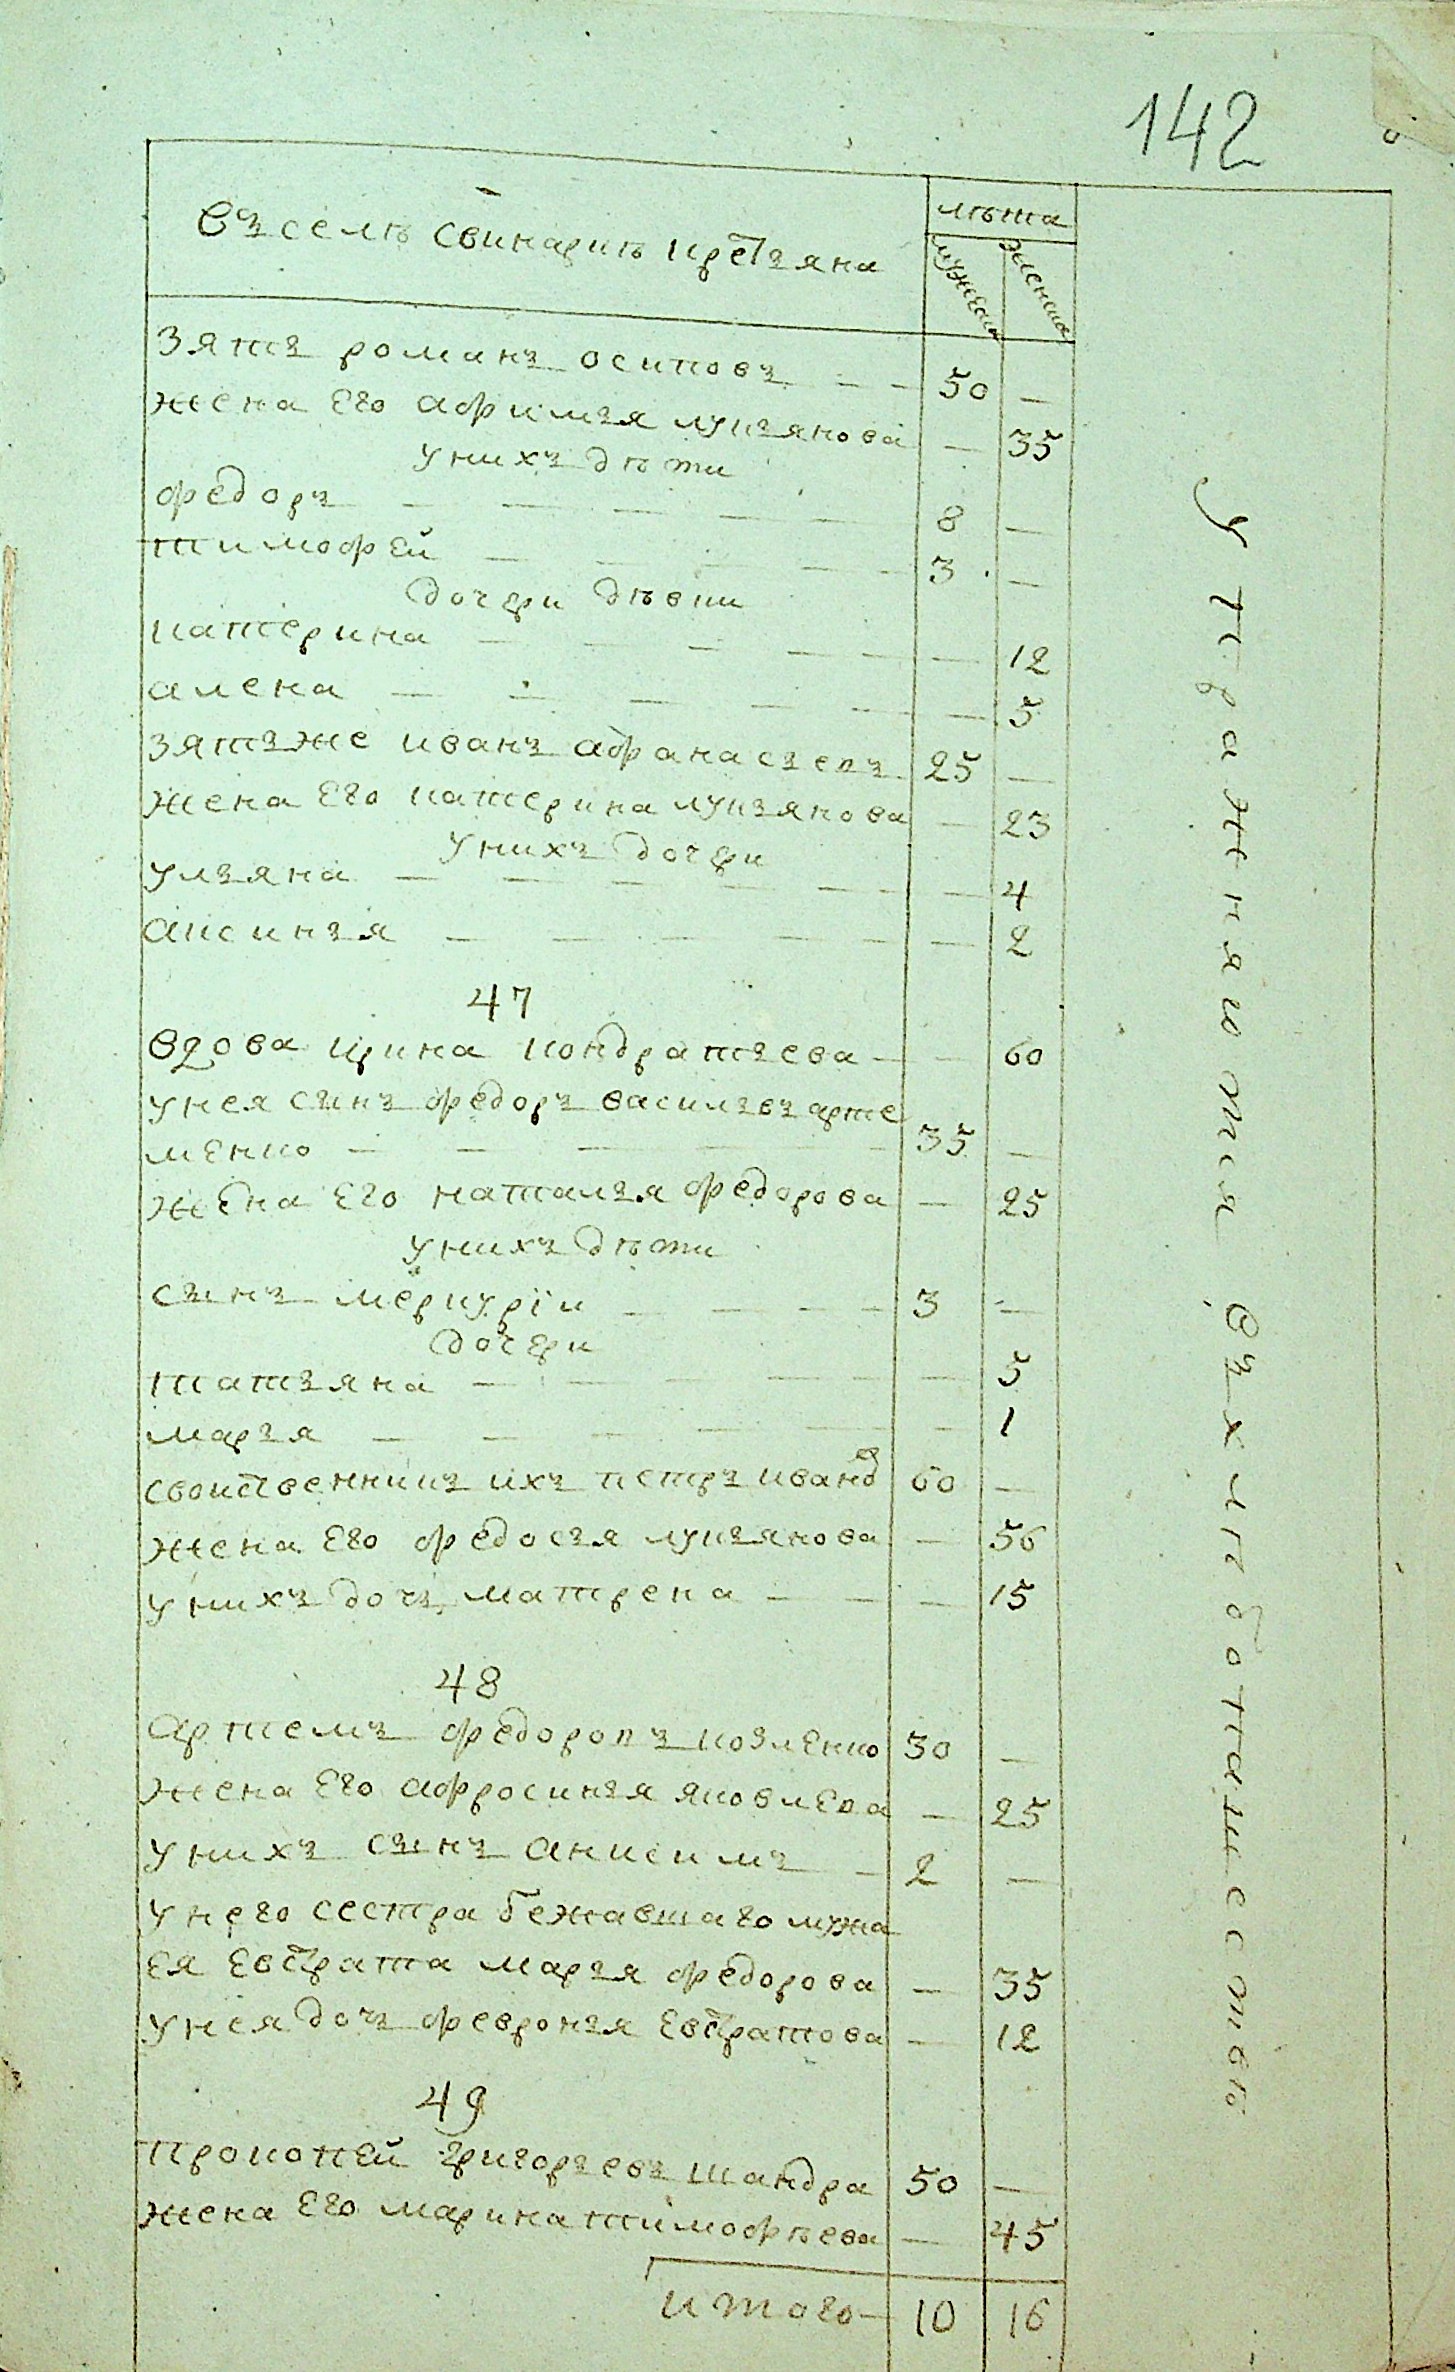 142
въ селѣ свинарнѣ крестьяна
лѣта
мужеска
женска
зять романъ осиповъ — — 50 —
жена его афимья лукьянова — 35
у нихъ дѣти
федоръ — — — — — 8 —
тимофей — — — — — 3 —
дочери дѣвки
катерина — — — — — — 12
алена — — — — — — 5
зять же иванъ афанасьевъ 25 —
жена его катерина лукьянова — 23
у нихъ дочери
ульяна — — — — — — — 4
аксинья — — — — — — 2
47
вдова ирина кондратьева — — 60
у нея сынъ федоръ васильевъ арте
менко — — — — — 35 —
жена его наталья федорова — 25
у нихъ дѣти
сынъ меркурїи — — — — 3 —
дочери
татьяна — — — — — — 5
марья — — — — — — 1
свойственникъ ихъ петръ ивановъ 60 —
жена его федосья лукьянова — 56
у нихъ дочь матрена — — — 15
48
артемъ федоровъ козленко 30 —
жена его афросинья яковлева — 25
у нихъ сынъ анисимъ — 2 —
у него сестра бежавшаго мужа
ея евстрата марья федорова — 35
у нея дочь февронья евстратова — 12
49
прокопей григорьевъ шандра 50 —
жена его марина тимофѣева — 45
итого — 10 16
упражняются въ хлѣбопашествѣ